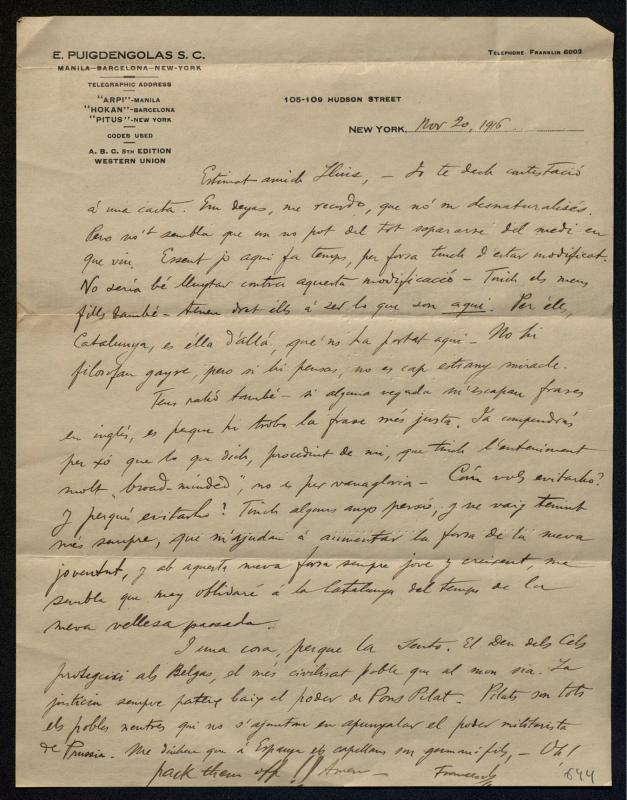 E. PUIGDENGOLAS S. C.
MANILA—BARCELONA—NEW-YORK
TELEPHONE FRANKLIN 6003
TELEGRAPHIC ADDRESS
"ARPI"-MANILA
"HOKAN"-BARCELONA
"PITUS"-NEW YORK
CODES USED
A. B. C. 5TH EDITION
WESTERN UNION
105-109 HUDSON STREET
NEW YORK, Nov 20, 1916
Estimat amich Lluis, – Jo te dech contestació
á una carta. Em deyas, me recordo, que nó'm desnaturalisés.
Pero no't sembla que un no pot del tot separarse del medi en
que viu. Essent jo aqui fa temps, per forsa tinch d'estar modificat.
No seria bé lluytar contra aquesta modificació – Tinch els meus
fills també – tenen dret ells á ser lo que son aqui. Per ells,
Catalunya, es ella d'allá, que'ns ha portat aqui – No hi
filosofan gayre, pero si hi pensas, no es cap estrany miracle.
Tens rahó també – si alguna vegada m'escapan frases
en inglés, es perque hi trobo la frase més justa. Ja compendrás
per xó que lo que dich, procedint de mi, que tinch l'enteniment
molt "broad-minded", no es per vanagloria – Cóm vols evitarho?
Y perqué evitarho? Tinch alguns anys persó, y ne vaig tenint
més sempre, que m'ajudan á aumentar la forsa de la meva
joventut, y ab aquesta meva forsa sempre jove y creixent, me
sembla que may oblidaré á la Catalunya del temps de la
meva vellesa passada.
I una cosa, perque la sento. El Deu dels Cels
protegeixi als Belgas, el més civilisat poble que al mon sia. La
justicia sempre pateix baix el poder de Pons Pilat. Pilats son tots
els pobles neutres qui no s'ajuntan en apunyalar el poder militarista
de Prussia. Me diuhen que á Espanya els capellans son germanofils, – Oh!
pack them off!! Amen –
Francesch
644